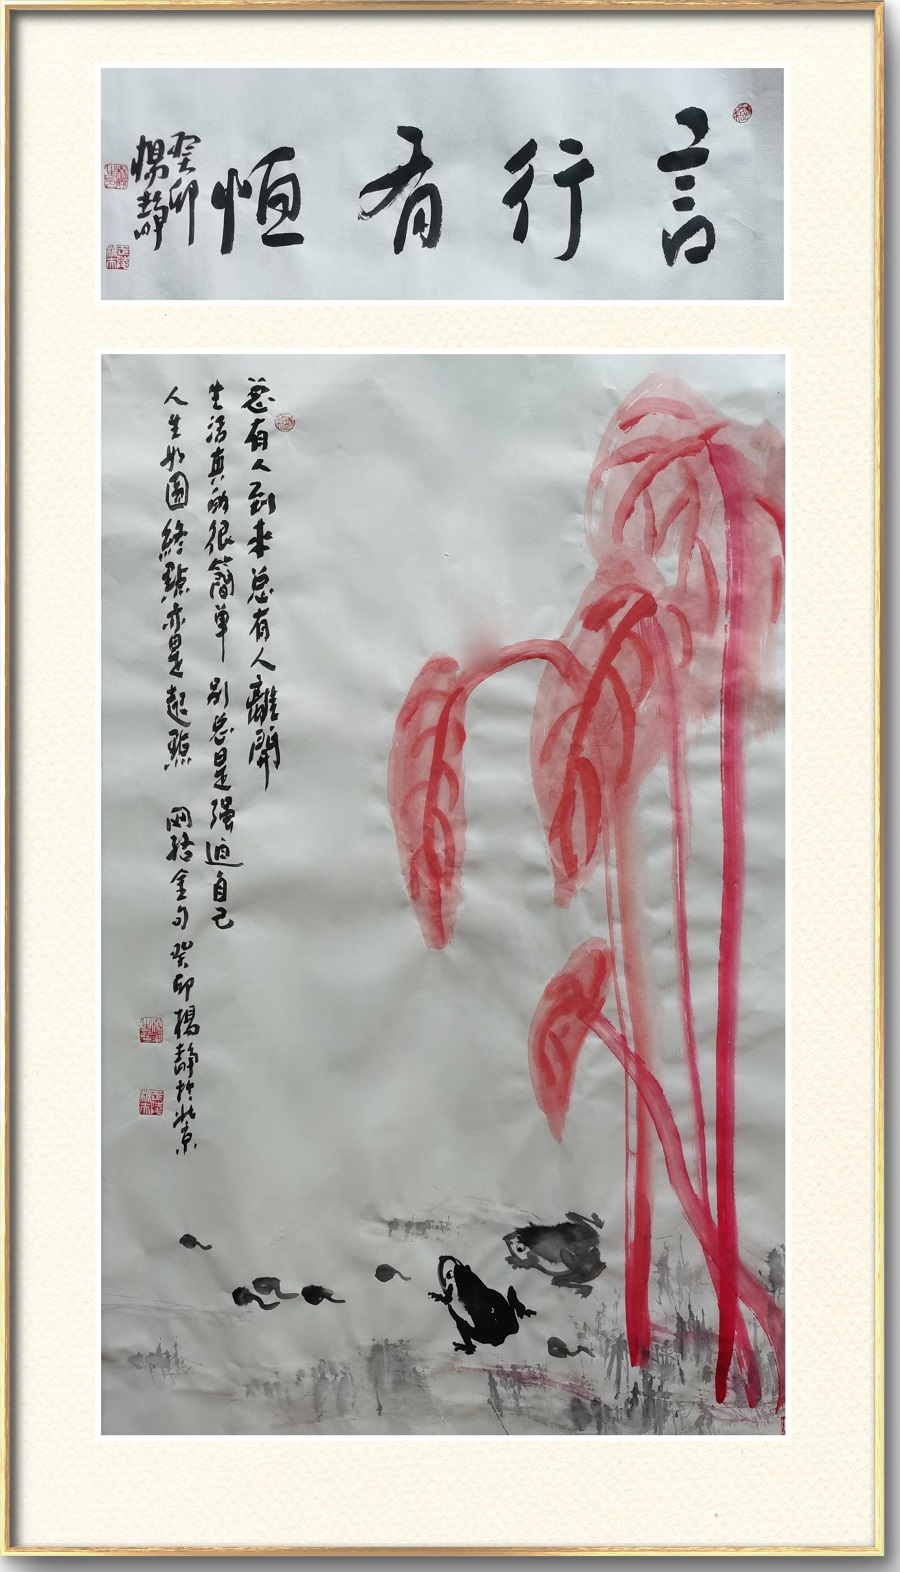 言行有恒
癸卯
楊靜
总有人到来总有人離開
生活真的很簡单 别总是强迫自己
人生如圓終點亦是起點 网络金句 癸卯楊靜於北京